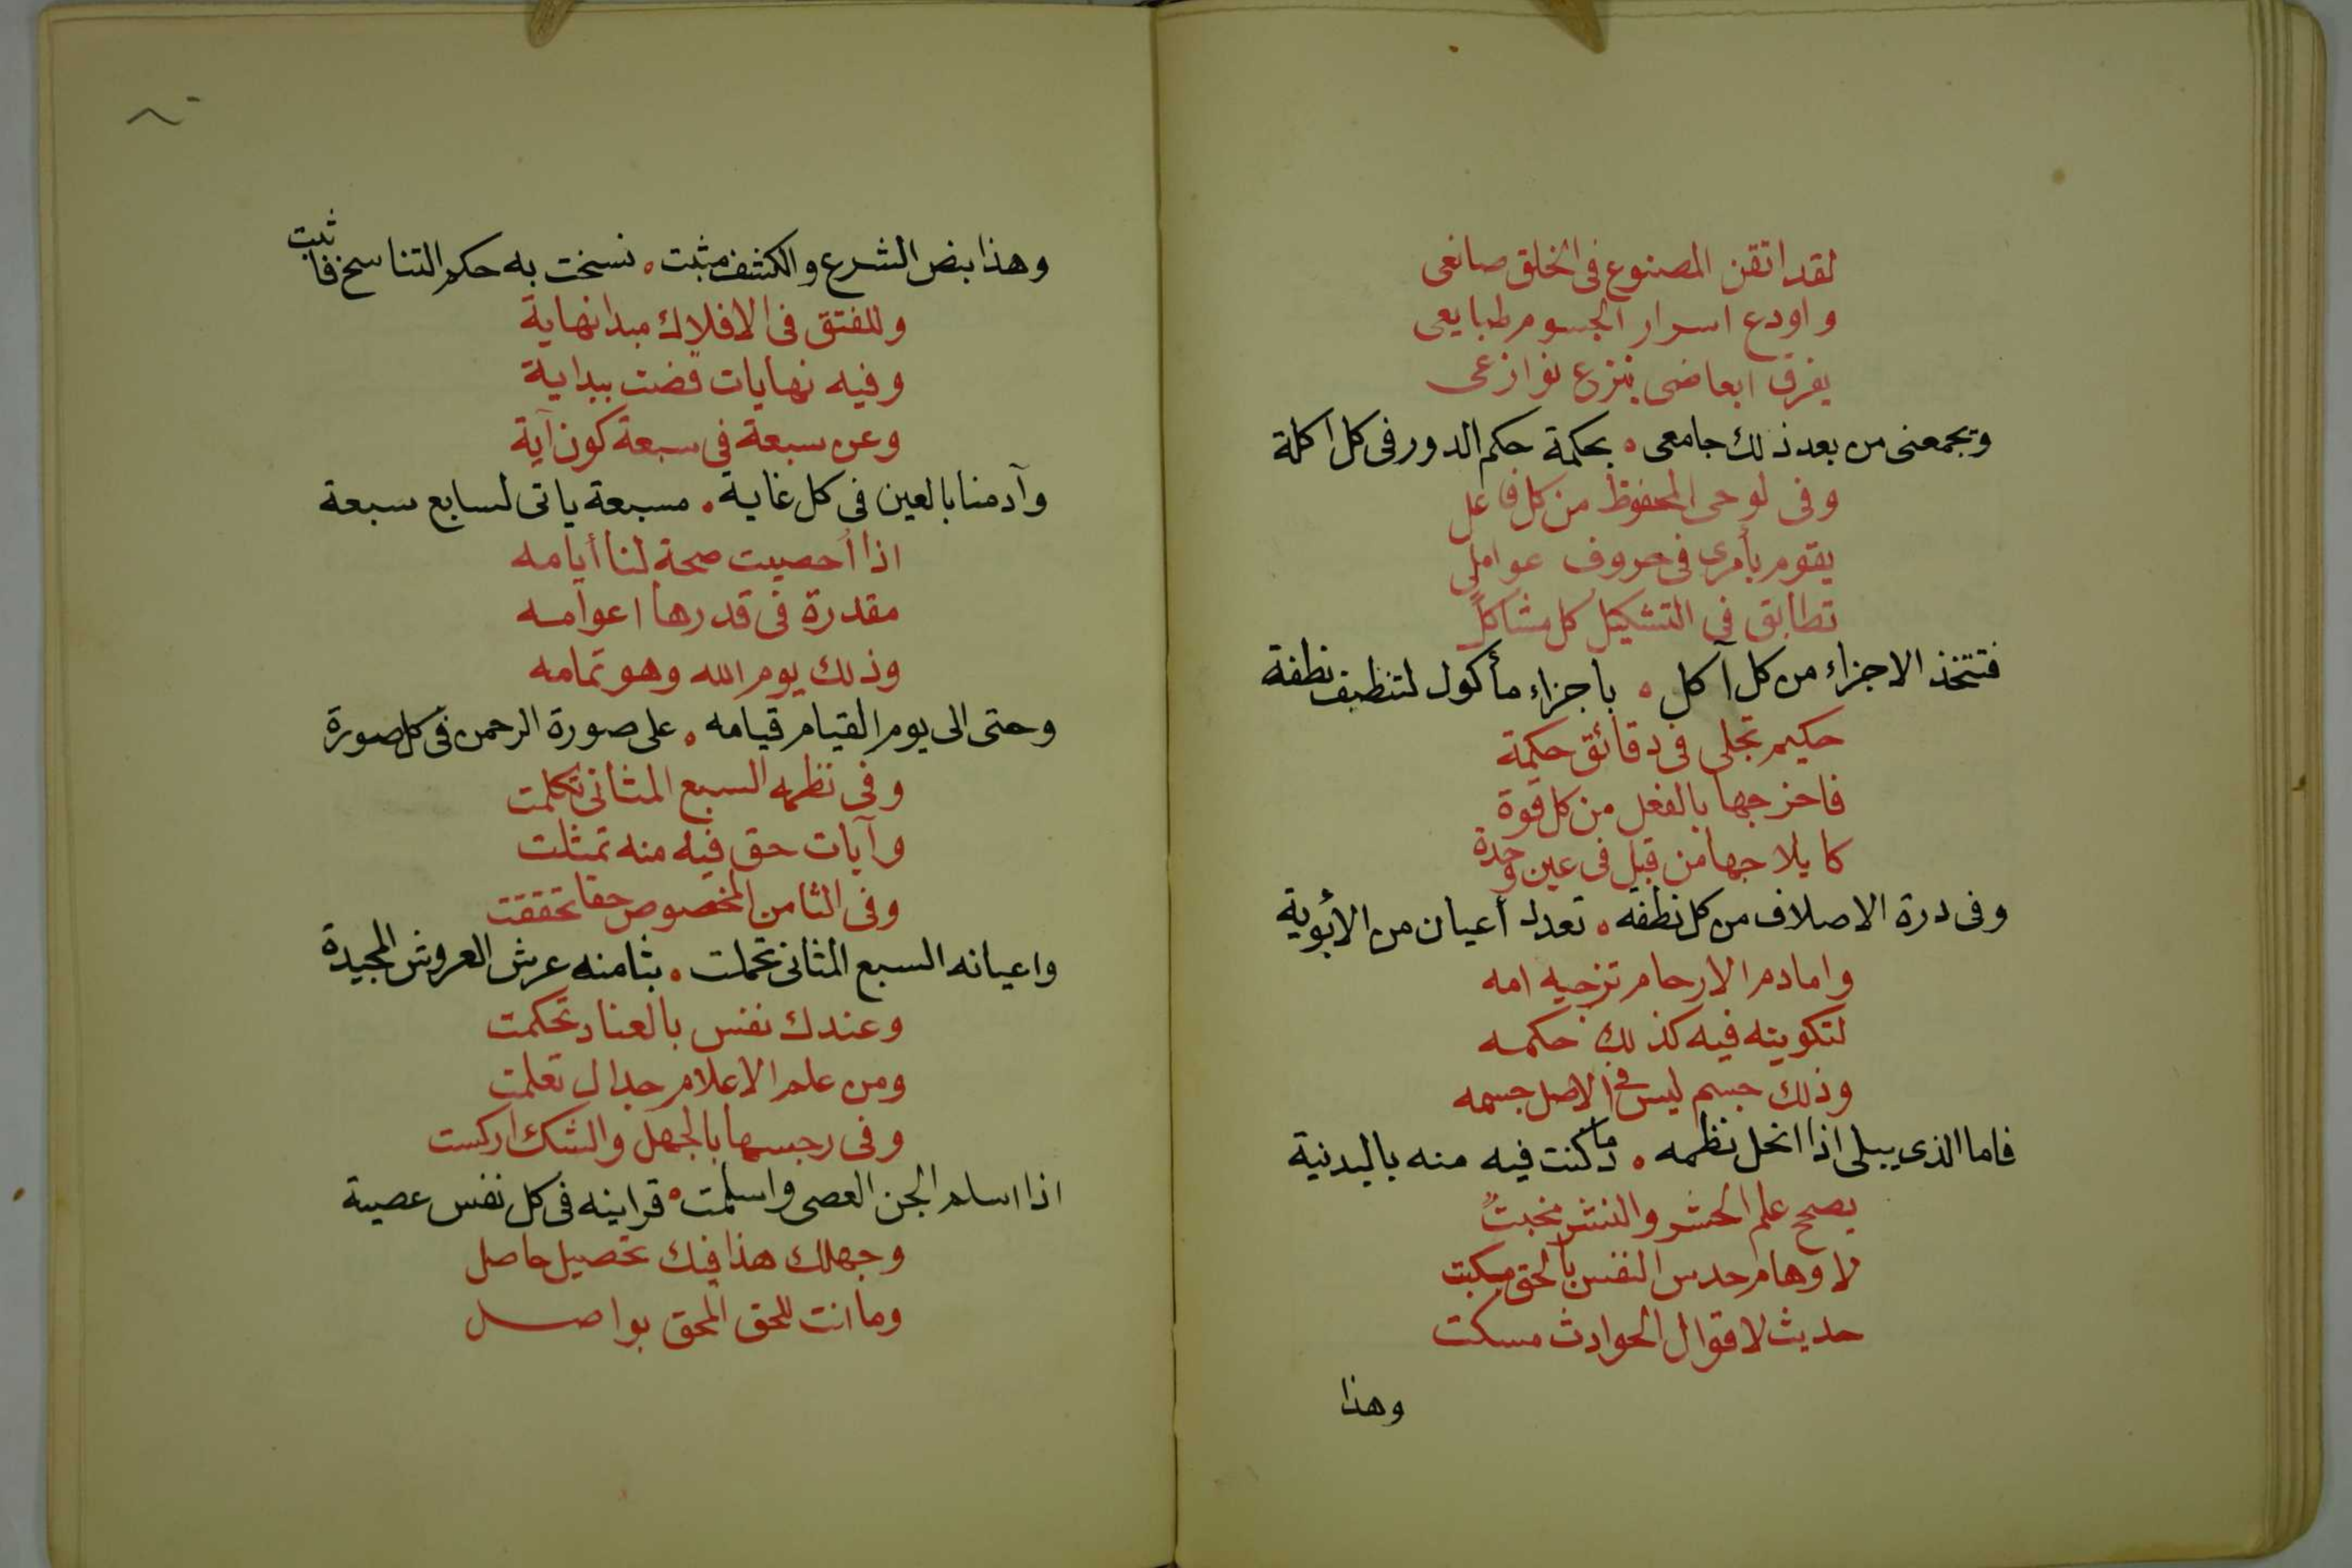 لقد اتقن المصنوع فى الخلق صانعى
واودع اسرار الجسوم طبايعى
يفرق ابعاضى بنزع نوازعى
ويجمعنى من بعد ذلك جامعى ه بحكمة حكم الدور فى كل اكلة
وفى لوحى المحفوظ من كل فاعل
يقوم بأمرى فى حروف عواملى
تطابق فى التشكيل كل مشاكل
فتتخذ الاجزاء من كل آكل ه باجزاء مأكول لتنظيف نطفة
حكيم تجلى فى دقائق حكمة
فاخرجها بالفعل من كل قوة
كايلاجها من قبل فى عين وحدة
وفى درة الاصلاف من كل نطفه ه تعدد أعيان من الأبوية
وامادم الارحام تزجيه امه
لتكوينه فيه كذلك حكمه
وذلك جسم ليس فى الاصل جسمه
فاما الذى يبلى اذا انحل نظمه ه فما كنت فيه منه بالبدنية
يصح علم الحشر والنشر مخبتٌ
لاوهام حدس النفس بالحق مبكت
حديث لاقوال الحوادث مسكت
وهذا
وهذا بنص الشرع والكشف مثبت ه نسخت به حكم التناسخ فاثبت
وللفتق فى الافلاك مبدا نهاية
وفيه نهايات قضت ببداية
وعن سبعة فى سبعة كون آية
وآدمنا بالعين فى كل غاية ه مسبعة ياتى لسابع سبعة
اذا أحصيت صحة لنا أيامه
مقدرة فى قدرها اعوامه
وذلك يوم الله وهو تمامه
وحتى الى يوم القيام قيامه ه على صورة الرحمن فى كل صورة
وفى نظمه السبع المثانى تكلمت
وآيات حق فيه منه تمثلت
وفى الثامن المخصوص حقا تحققت
واعيانه السبع المثانى تحملت ه بثامنه عرش العروش المجيدة
وعندك نفس بالعناد تحكمت
ومن علم الاعلام جدال تعلمت
وفى رجسها بالجهل والشك اركست
اذا اسلم الجن العصى واسلمت ه قراينه فى كل نفس عصية
وجهلك هذا فيك تحصيل حاصل
وما انت للحق المحق بواصل